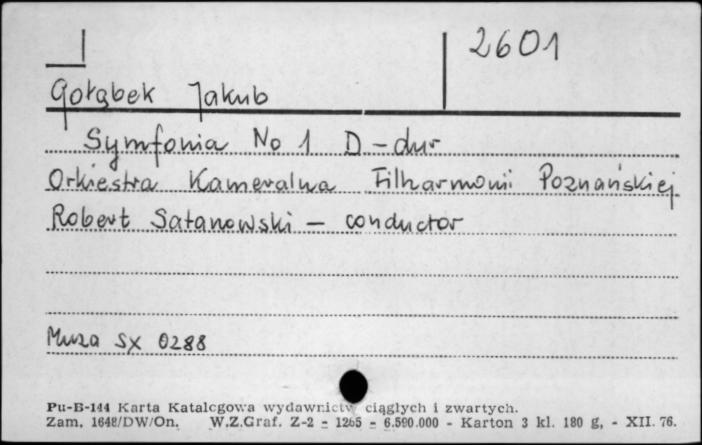 2601
Gołąbek Jakub
Symfonia No 1 D-dur
Orkiestra Kameralna Filharmonii Poznańskiej
Robert Satanowski - conductor
Muza SX 0288
Pu-B-144 Karta Katalogowa wydawnictw ciągłych i zwartych.
Zam. 1648/DW/On. W.Z.Graf. Z-2 - 1265 - 6.500.000 - Karton 3 kl. 180 g, - XII. 76.